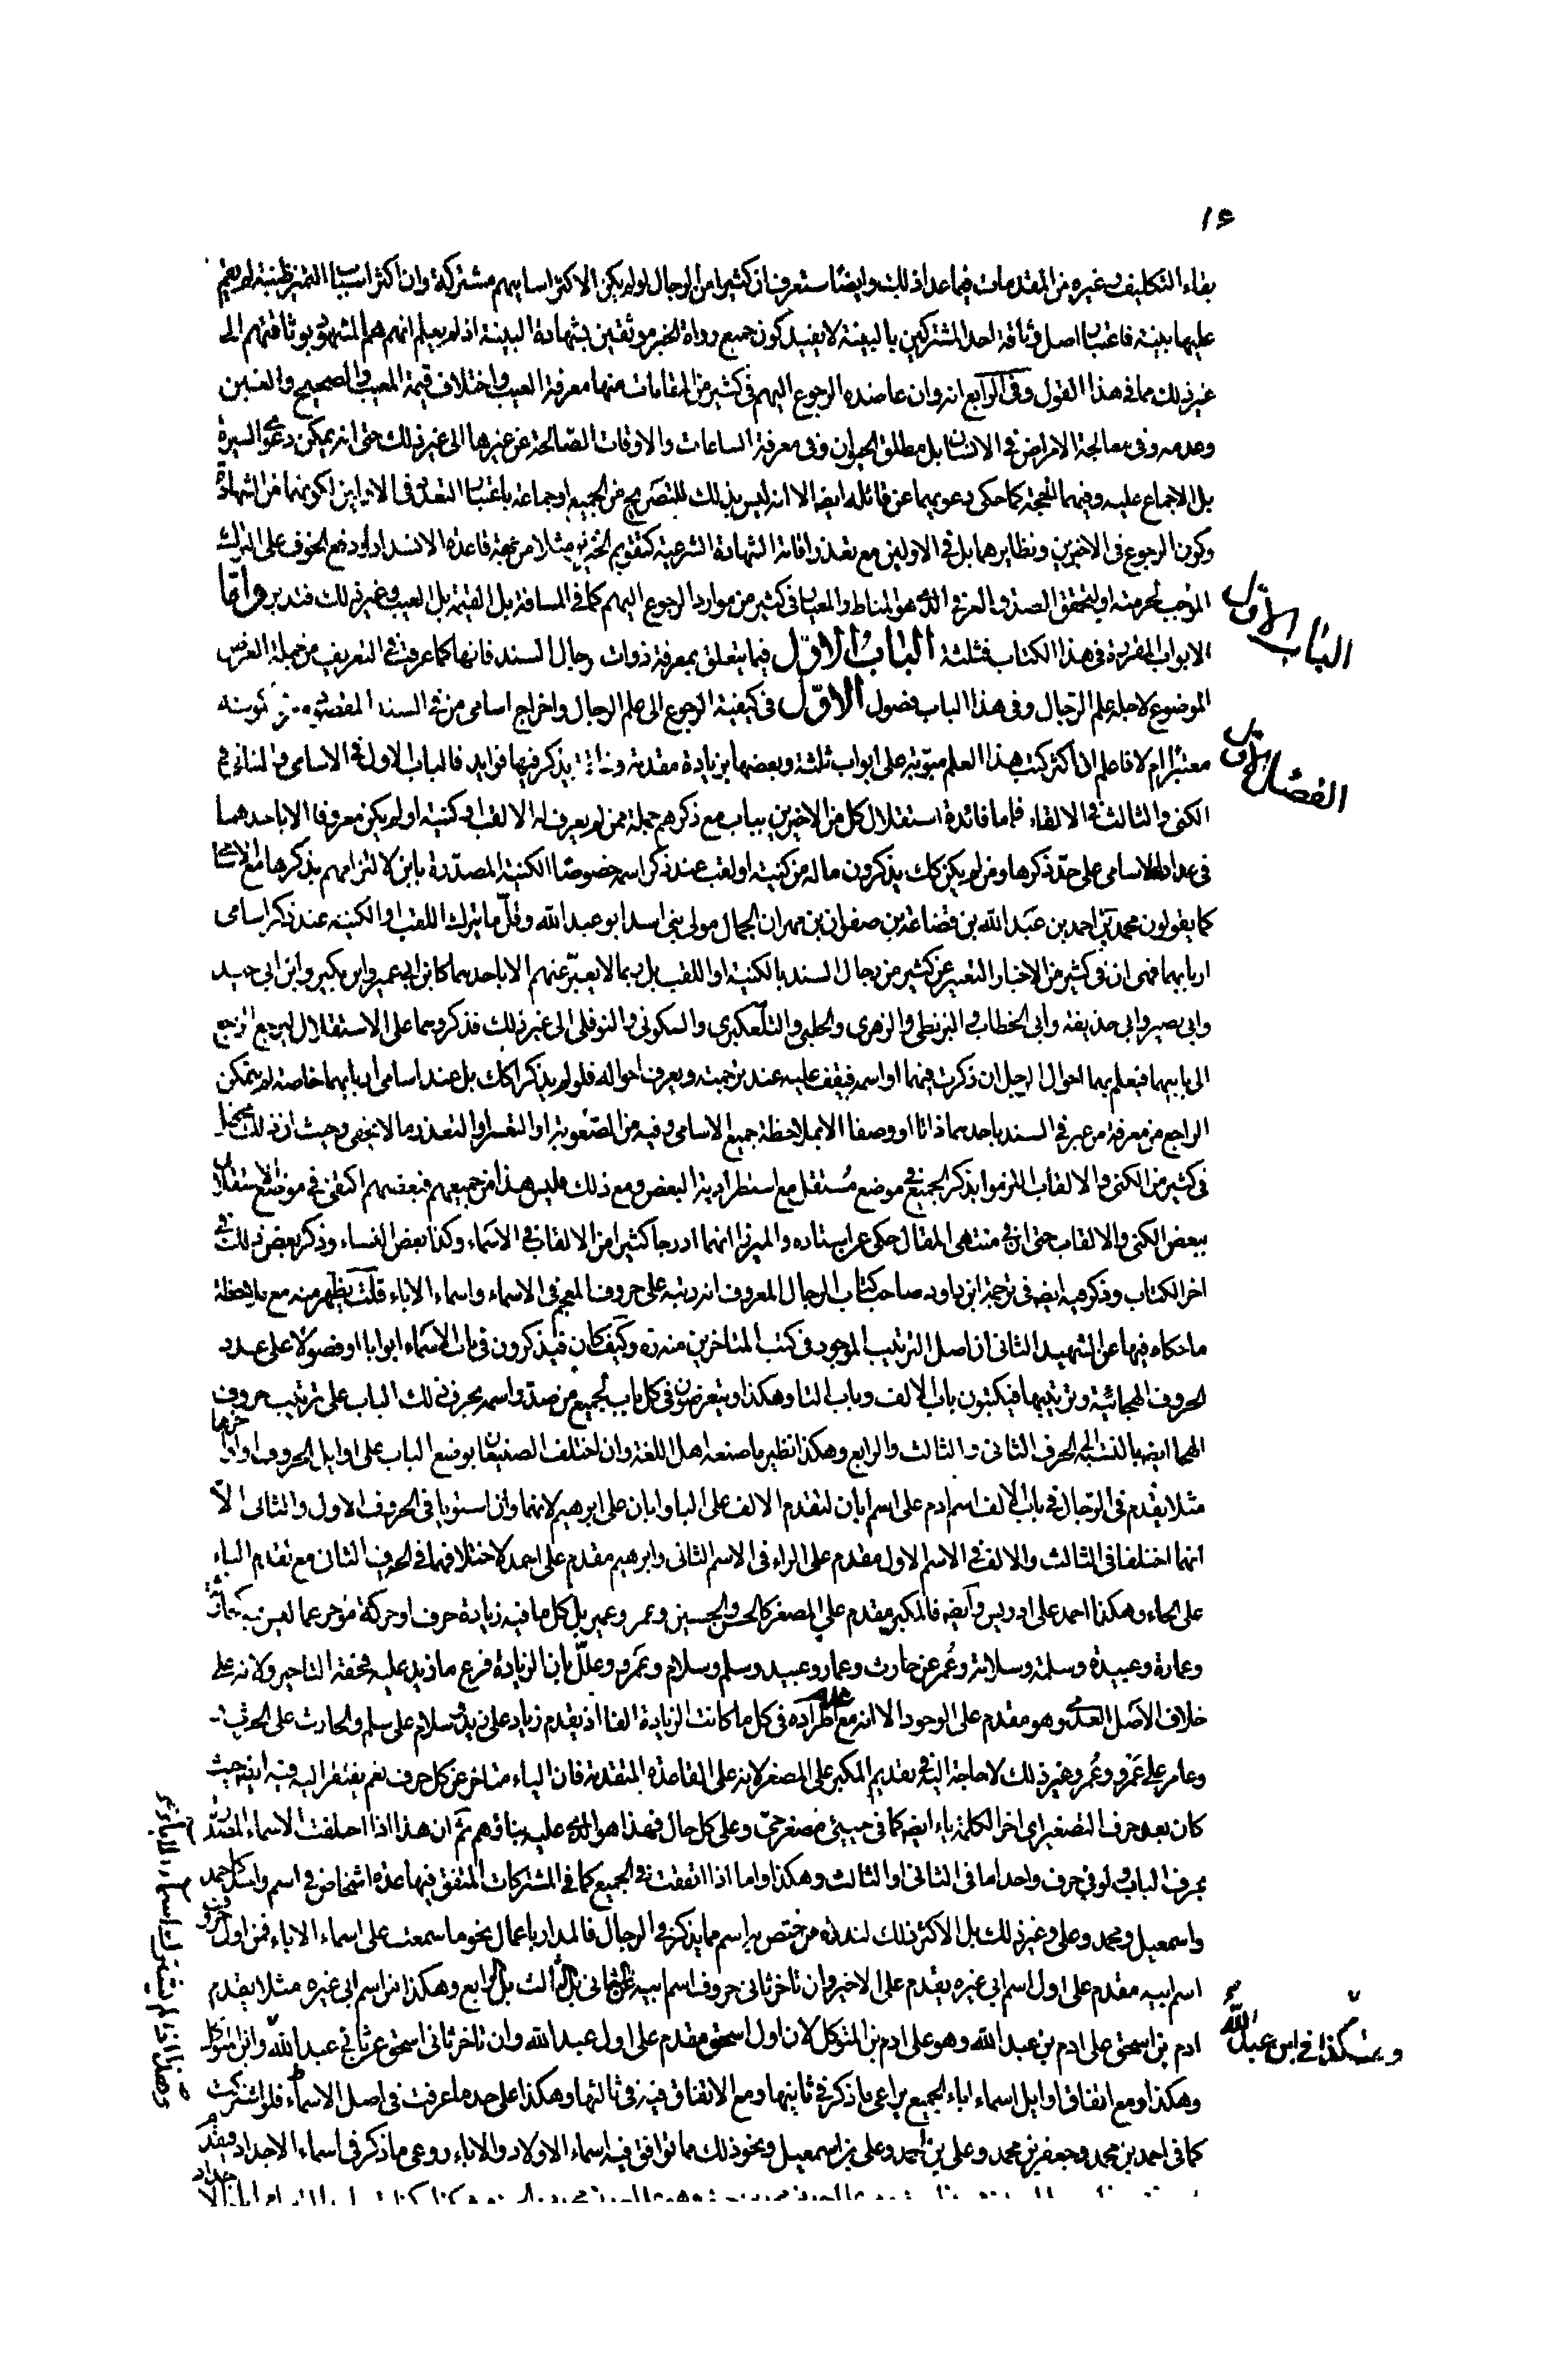 ١٤
بقاء التكليف وغيره من المقدمات فيما عدا ذلك وايضا ستعرف ان كثيرا من الرجال لو لم يكن الاكثر اساميهم مشتركة وان اكثر اسباب التميز ظنية لم يقم
عليها بينة فاعتبار اصل وثاقة احد المشتركين بالبينة لا يفيد كون جميع رواة الخبر موثقين بشهادة البينة اذ لم يعلم انهم هم المشهود بوثاقتهم الى
غير ذلك مما في هذا القول وفي الرابع انه وان عاضده الرجوع اليهم في كثير من المقامات منها معرفة العيب واختلاف قيمة المعيب والصحيح والغبن
وعدمه وفي معالجة الامراض في الانسان بل مطلق الحيوان وفي معرفة الساعات والاوقات الصالحة عن غيرها الى غير ذلك حتى انه يمكن دعوى السيرة
بل الاجماع عليه وفيهما الحجة كما حكى دعويهما عن قائله ايضا الا انه ليس بذلك للتصريح من الجميع او جماعة باعتبار التعدد في الاولين لكونهما من الشهادة
وكون الرجوع في الاخيرين ونظايرهما بل في الاولين مع تعذر اقامة الشهادة الشرعية كتقويم الخنزير مثلا من جهة قاعدة الانسداد او دفع الخوف على الترك
الموجب لحرمته او لتحقق الصدق العرفي الذي هو المناط والمعيار في كثير من موارد الرجوع اليهم كما في المسافة بل القيمة بل العيب وغير ذلك فتدبر واما
الابواب المقررة في هذا الكتاب فثلثة الباب الاول فيما يتعلق بمعرفة ذوات رجال السند فانها كما عرفت في التعريف من جملة الغرض
الموضوع لاجله علم الرجال وفي هذا الباب فصول الاول في كيفية الرجوع الى علم الرجال واخراج اسامى من في السند المقصود كونه
معتبرا ام لا فاعلم ان اكثر كتب هذا العلم مبوبة على ابواب ثلثة وبعضها بزيادة مقدمة وخاتمة يذكر فيها فوايد فالباب الاول في الاسامى والثاني في
الكنى والثالث في الالقاب فاما فائدة استقلال كل من الاخيرين بباب مع ذكرهم جملة ممن لم يعرف له الا لقب او كنية او لم يكن معروفا الا باحدهما
في عداد الاسامى على حد ذكرها ومن لم يكن كك يذكرون ما له من كنية او لقب عند ذكر اسمه خصوصا الكنية المصدرة بابن لالتزامهم بذكرها مع الاسامى
كما يقولون محمد بن احمد بن عبد الله بن قضاعة بن صفوان بن مهران الجمال مولى بنى اسد ابو عبد الله وقل ما يترك اللقب او الكنية عند ذكر اسامى
اربابهما فهى ان في كثير من الاخبار التعبير عن كثير من رجال السند بالكنية او اللقب بل ربما لا يعبر عنهم الا باحدهما كابن ابي عمير وابن بكير وابن ابي جيد
وابي بصير وابي حذيفة وابي الخطاب والبزنطي والزهري والحلبي والتلعكبري والسكوني والنوفلي الى غير ذلك فذكروهما على الاستقلال ليرجع الراجع
الى بابيهما فيعلم بهما احوال الرجل ان ذكرت فيهما او اسمه فيقف عليه عند ترجمته ويعرف احواله فلو لم يذكرا كك بل عند اسامى اربابهما خاصة لم يتمكن
الراجع من معرفة من عبر في السند باحدهما ذاتا او وصفا الا بملاحظة جميع الاسامى وفيه من الصعوبة او التعسر او التعذر ما لا يخفى وحيث ان ذلك يتخيل
في كثير من الكنى والالقاب التزموا بذكر الجميع في موضع مستقل مع استطرادية البعض ومع ذلك فليس هذا من جميعهم فبعضهم اكتفى في موضع الاستقلال
ببعض الكنى والالقاب حتى ان في منتهى المقال حكى عن استاده والميرزا انهما ادرجا كثيرا من الالقاب في الاسماء وكذا بعض النساء وذكر بعض ذلك في
اخر الكتاب وذكر فيه ايضا في ترجمة ابن داود صاحب كتاب الرجال المعروف انه رتبه على حروف المعجم في الاسماء واسماء الاباء قلت يظهر منه مع ملاحظة
ما حكاه فيها عن الشهيد الثاني ان اصل الترتيب الموجود في كتب المتاخرين منه ره وكيف كان فيذكرون في باب الاسماء ابوابا او فصولا على عدد
الحروف الهجائية وترتيبها فيكتبون باب الالف وباب البا وهكذا ويتعرضون في كل باب لجميع من صدر اسمه بحرف ذلك الباب على ترتيب حروف
الهجا ايضا بالنسبة الى الحرف الثاني والثالث والرابع وهكذا نظير ما صنعه اهل اللغة وان اختلف الصنيعان بوضع الباب على اوايل الحروف او اواخرها
مثلا يقدم في الرجال في باب الالف اسم ادم على اسم ابان لتقدم الالف على البا وابان على ابرهيم لانهما وان استويا في الحروف الاول والثاني الا
انهما اختلفا في الثالث والالف في الاسم الاول مقدم على الراء في الاسم الثاني وابرهيم مقدم على احمد لاختلافهما في الحرف الثاني مع تقدم الباء
على الحاء وهكذا احمد على ادريس وايضا فالمكبر مقدم على المصغر كالحسن والحسين وعمر وعمير بل كل ما فيه زيادة حرف او حركة مؤخر عما ليس فيه
وعمارة وعبيدة وسلمة وسلامة وعمر عن حارث وعمار وعبيد وسلم وسلام وعمرو وعلل بان الزيادة فرع ما زيد عليه فحقه التاخير ولانه على
خلاف الاصل العدمى وهو مقدم على الوجود الا انه مع عدم اطراده في كل ما كانت الزيادة الفا اذ يقدم زياد على زيد وسلام على سلم والحارث على الحرث
وعامر على عمرو وعمر وغير ذلك لا حاجة اليه في تقديم المكبر على المصغر لانه على القاعدة المتقدمة فان الياء متاخر عن كل حرف نعم يفتقر اليه فيه ايضا حيث
كان بعد حرف التصغير اى اخر الكلمة ياء ايضا كما في حبيى مصغر حبى وعلى كل حال فهذا هو الذي عليه بناؤهم ثم ان هذا اذا اختلفت الاسماء المصدرة
بحرف الباب ولو في حرف واحد اما في الثاني او الثالث وهكذا واما اذا اتفقت في الجميع كما في المشتركات المتفق فيها عدة اشخاص في اسم واحد كاحمد
واسمعيل ومحمد وعلى وغير ذلك بل الاكثر ذلك لندرة من اختص به اسم مما يذكر في الرجال فالمدار باعمال نحو ما سمعت على اسماء الاباء فمن اول حروف
اسم ابيه مقدم على اول اسم ابي غيره يقدم على الاخير وان تاخر ثاني حروف اسم ابيه عن ثاني بل الثالث بل الرابع وهكذا من اسم ابي غيره مثلا يقدم
ادم بن اسحق على ادم بن عبد الله وهو على ادم بن المتوكل لان اول اسحق مقدم على اول عبد الله وان تاخر ثاني اسحق عن ثاني عبد الله وابن المتوكل
وهكذا ومع اتفاق اوايل اسماء اباء الجميع يراعى ما ذكر في ثانيها ومع الاتفاق فيه في ثالثها وهكذا على حد ما عرفت في اصل الاسماء فلو اشتركت
كما في احمد بن محمد وجعفر بن محمد وعلى بن احمد وعلى بن اسمعيل ونحو ذلك مما توافق فيه اسماء الاولاد والاباء روعى ما ذكر في اسماء الاجداد فيقدم
الباب الاول
الفصل الاول